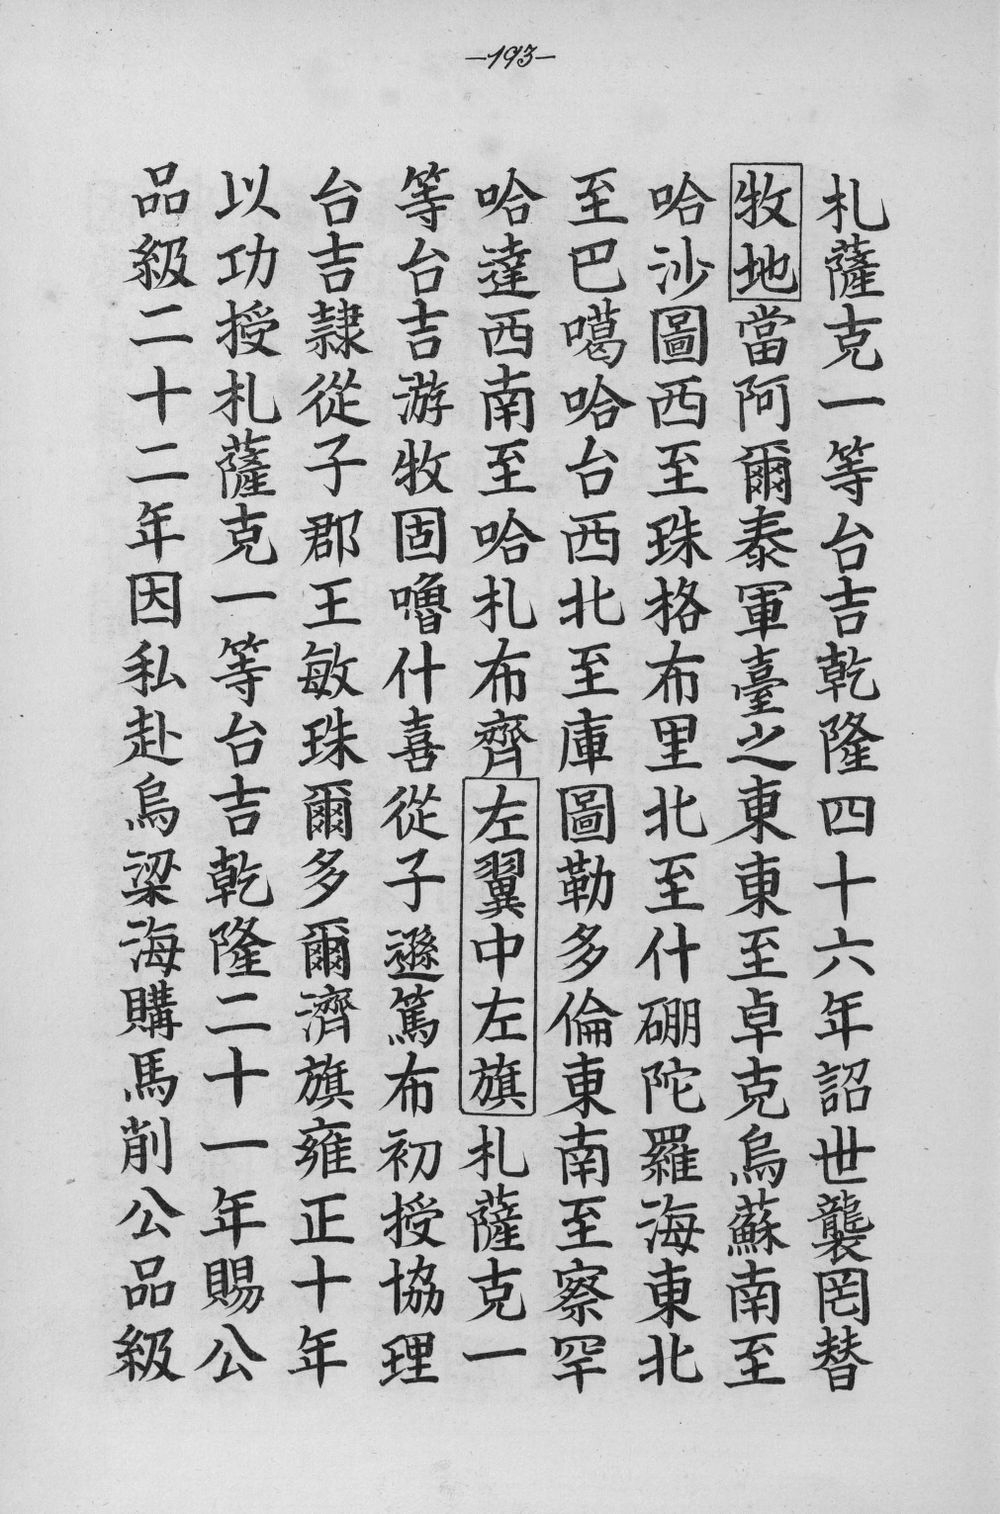 —193—
札薩克一等台吉乾隆四十六年詔世襲罔替
牧地當阿爾泰軍臺之東東至卓克烏蘇南至
哈沙圖西至珠格布里北至什硼陀羅海東北
至巴噶哈台西北至庫圖勒多倫東南至察罕
哈達西南至哈札布齊左翼中左旗札薩克一
等台吉游牧固嚕什喜從子遜篤布初授協理
台吉隸從子郡王敏珠爾多爾濟旗雍正十年
以功授札薩克一等台吉乾隆二十一年賜公
品級二十二年因私赴烏梁海購馬削公品級